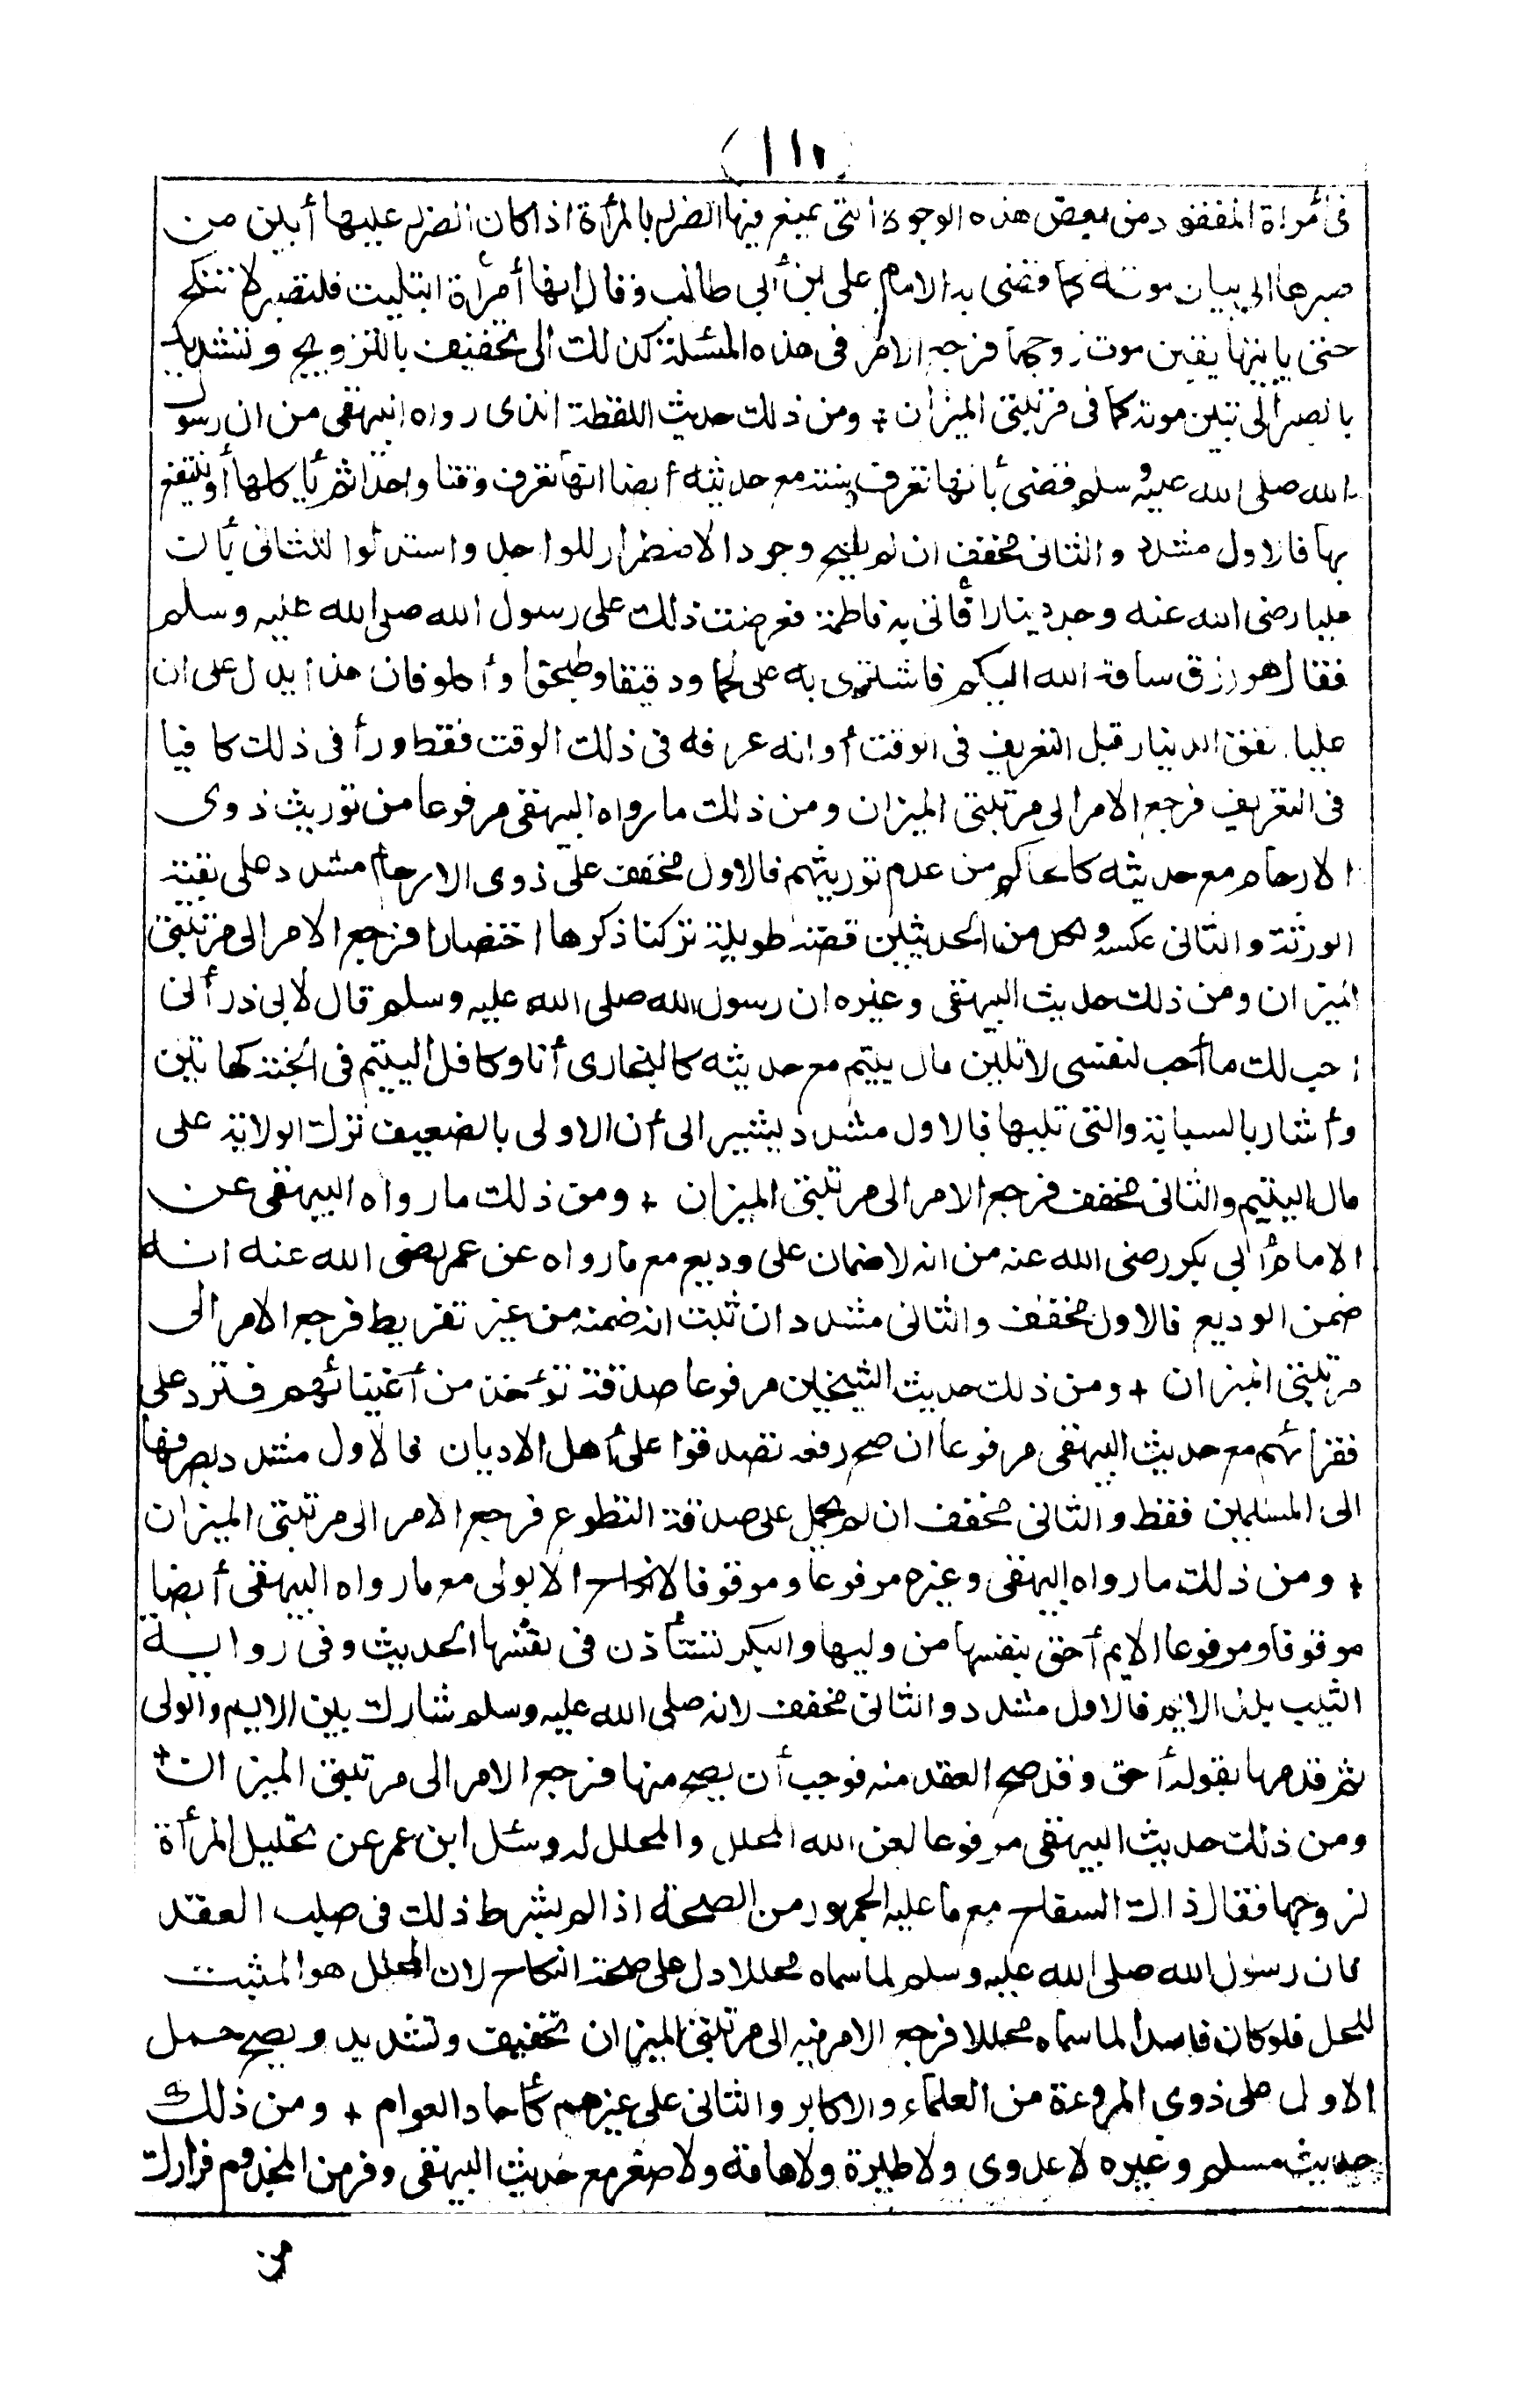 (١١٥)
فى أمراة المفقود من بعض هذه الوجوه التى يمنع فيها الضرر بالمرأة اذا كان الضرر عليها أبين من
صبرها الى بيان موته كما قضى به الامام على ابن أبى طالب وقال انها أمرأة ابتليت فلتصبر لا تنكح
حتى ياتيها يقين موت زوجها فرجع الامر فى هذه المسئلة كذلك الى تخفيف بالتزويج وتشديد
بالصبر الى تبين موته كما فى مرتبتى الميزان + ومن ذلك حديث اللقطة الذى رواه البيهقى من ان رسول
الله صلى الله عليه وسلم قضى بأنها تعرف سنة مع حديثه أيضا انها تعرف وقتا واحدا ثم يأكلها أو ينتفع
بها فالاول مشدد والثانى مخفف ان لم يبح وجود الاضطرار للواجد واستدلوا للثانى بأن
عليا رضى الله عنه وجد دينارا فأتى به فاطمة فعرضت ذلك على رسول الله صلى الله عليه وسلم
فقال هو رزق ساقه الله اليكم فاشترى به على لحما ودقيقا وطبخوا وأكلو فان هذا يدل على ان
عليا نفق الدينار قبل التعريف فى الوقت أو انه عرفه فى ذلك الوقت فقط ورأ فى ذلك كافيا
فى التعريف فرجع الامر الى مرتبتى الميزان ومن ذلك ما رواه البيهقى مرفوعا من توريث ذوى
الارحام مع حديثه كالحاكم من عدم توريثهم فالاول مخفف على ذوى الارحام مشدد على بقية
الورثة والثانى عكسه ولكل من الحديثين قصة طويلة تركنا ذكرها اختصارا فرجع الامر الى مرتبتى
الميزان ومن ذلك حديث البيهقى وغيره ان رسول الله صلى الله عليه وسلم قال لابى ذر أنى
احب لك ما أحب لنفسى لا تلين مال يتيم مع حديثه كالبخارى أنا وكافل اليتيم فى الجنة كهاتين
وأشار بالسبابة والتى تليها فالاول مشدد يشير الى أن الاولى بالضعيف ترك الولاية على
مال اليتيم والثانى مخفف فرجع الامر الى مرتبتى الميزان + ومن ذلك ما رواه البيهقى عن
الامام أبى بكر رضى الله عنه من انه لا ضمان على وديع مع ما رواه عن عمر رضى الله عنه انه
ضمن الوديع فالاول مخفف والثانى مشدد ان ثبت انه ضمنه من غير تفريط فرجع الامر الى
مرتبتى الميزان + ومن ذلك حديث الشيخين مرفوعا صدقة تؤخذ من أغنيائهم فترد على
فقرائهم مع حديث البيهقى مرفوعا ان صح رفعه تصدقوا على أهل الاديان فالاول مشدد بصرفها
الى المسلمين فقط والثانى مخفف ان لم يحمل على صدقة التطوع فرجع الامر الى مرتبتى الميزان
+ ومن ذلك ما رواه البيهقى وغيره مرفوعا وموقوفا لا نكاح الا بولى مع ما رواه البيهقى أيضا
موقوفا ومرفوعا الايم أحق بنفسها من وليها والبكر تستأذن فى نفسها الحديث وفى رواية
الثيب بدل الايم فالاول مشدد والثانى مخفف لانه صلى الله عليه وسلم شارك بين الايم والولى
ثم قدمها بقوله أحق وقد صح العقد منه فوجب أن يصح منها فرجع الامر الى مرتبتى الميزان +
ومن ذلك حديث البيهقى مرفوعا لعن الله المحلل والمحلل له وسئل ابن عمر عن تحليل المرأة
لزوجها فقال ذاك السفاح مع ما عليه الجمهور من الصحة اذا لم يشرط ذلك فى صلب العقد
فان رسول الله صلى الله عليه وسلم لما سماه محللا دل على صحة النكاح لان المحلل هو المثبت
للحل فلو كان فاسدا لما سماه محللا فرجع الامر فيه الى مرتبتى الميزان تخفيف وتشديد ويصح حمل
الاول على ذوى المروءة من العلماء والاكابر والثانى على غيرهم كأحاد العوام + ومن ذلك
حديث مسلم وغيره لا عدوى ولا طيرة ولا هامة ولا صفر مع حديث البيهقى وفر من المجذوم فرارك
من